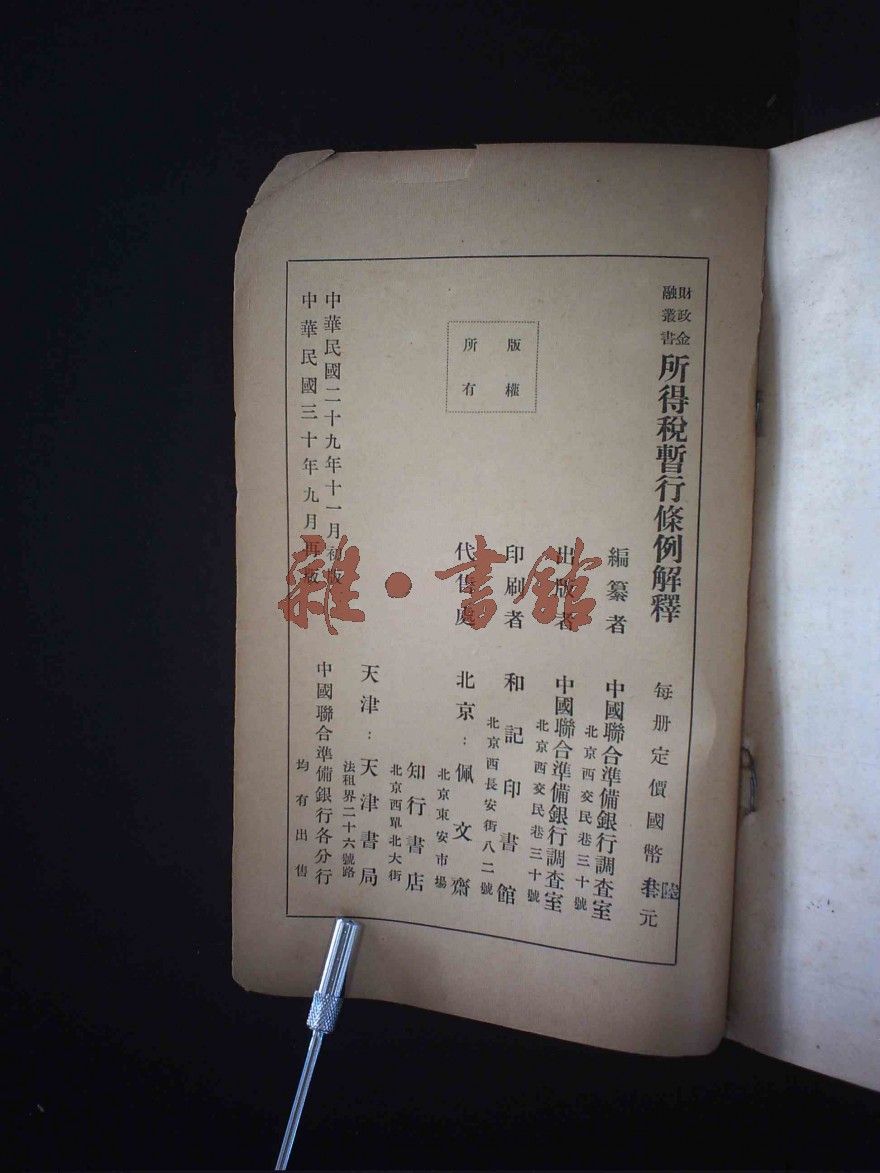 財政金
融叢書
所得稅暫行條例解釋
每册定價國幣元
陸
編纂者 中國聯合準備銀行調查室
北京西交民巷三十號
出版者 中國聯合準備銀行調查室
北京西交民巷三十號
版權
所有
印刷者 和記印書館
北京西長安街八二號
代售處 北京：佩文齋
北京東安市場
知行書店
北京西單北大街
天津：天津書局
法租界二十六號路
中國聯合準備銀行各分行
均有出售
中華民國二十九年十一月初版
中華民國三十年九月再版
雜·書館